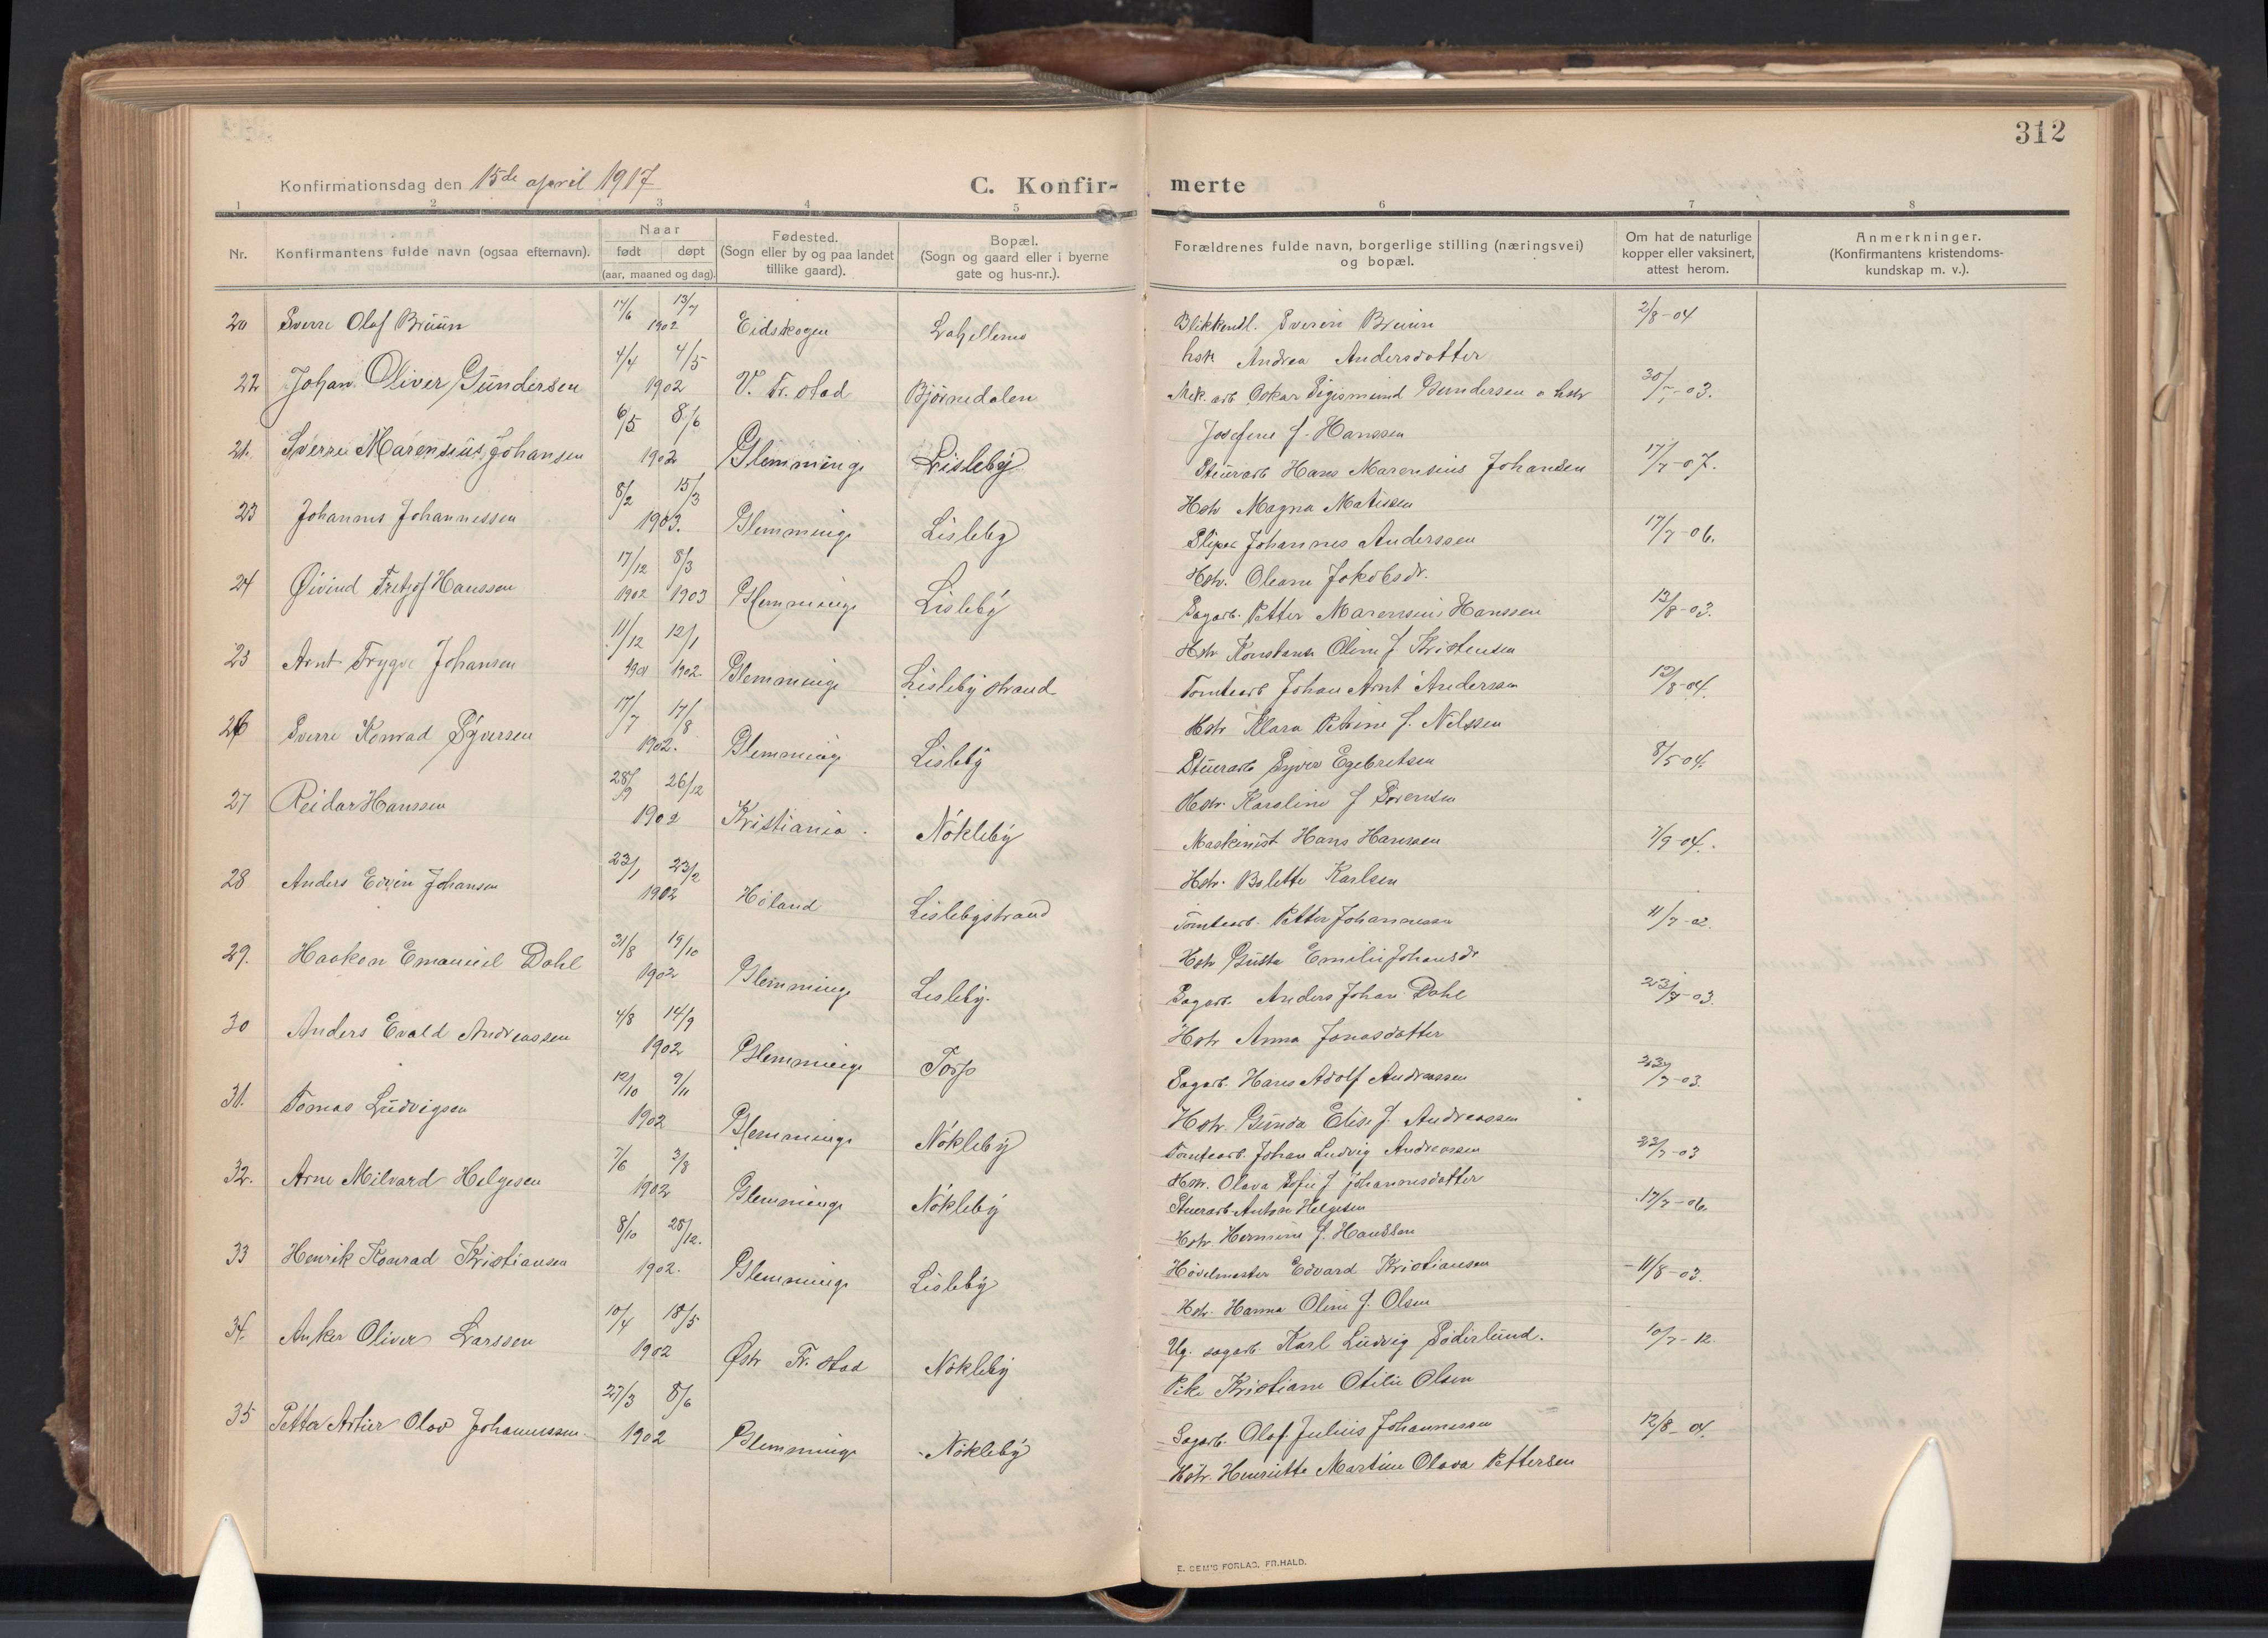 312
Konfirmationsdag den 15de april 1917
C. Konfir- merte
1 2 3 4 5 6 7 8
Nr.
Konfirmantens fulde navn (ogsaa efternavn).
Naar
født døpt
(aar, maaned og dag).
Fødested.
(Sogn eller by og paa landet
tillike gaard).
Bopæl.
(Sogn og gaard eller i byerne
gate og hus-nr.).
Forældrenes fulde navn, borgerlige stilling (næringsvei)
og bopæl.
Om hat de naturlige
kopper eller vaksinert,
attest herom.
Anmerkninger.
(Konfirmantens kristendoms-
kundskap m. v.).
20 Sverre Olaf Bruun 14/6 13/7 1902 Eidskogen Lahellemo Blikkensl. Severin Bruun 2/8-04
hstr Andrea Andersdatter
22 Johan Oliver Gundersen 4/4 4/5 1902 V. Fr.stad Bjørnedalen Mek. arb Oskar Sigismund Gundersen o hstr 30/7-03.
Josefine f. Hanssen
21. Sverre Marensius Johansen 6/5 8/6 1902 Glemminge Lisleby Stuerarb Hans Marensius Johansen 17/7-07.
Hstr Magna Matissen
23 Johannes Johannessen 8/2 15/3 1903. Glemminge Lisleby Sliper Johannes Anderssen 17/7-06.
Hstr. Oleane Jakobsdr.
24 Øivind Fritjof Hanssen 17/12 8/3 1902 1903 Glemminge Lisleby Sagarb. Petter Marensius Hanssen 13/8-03.
Hstr Konstanse Oline f Kristensen
25 Arnt Trygve Johansen 11/12 12/1 1901 1902 Glemminge Lisleby strand Tomtearb Johan Arnt Anderssen 13/8-04.
Hstr Klara Petrine f. Nilssen
26 Sverre Konrad Syversen 17/7 17/8 1902. Glemminge Lisleby Stuerarb Syver Egebretsen 8/5-04.
Hstr. Karoline f Sørensen
27 Reidar Hanssen 28/9 26/12 1902 Kristiania. Nøkleby Maskinist Hans Hanssen 7/9-04.
Hstr. Bolette Karlsen
28 Anders Edvin Johansen 23/1 23/2 1902 Høland Lislebystrand Tomtearb. Petter Johannessen 11/7-02.
Hstr Gusta Emilie Johansdr
29. Haakon Emanuel Dahl 31/8 19/10 1902 Glemminge Lisleby. Sagarb. Anders Johan Dahl 23/7-03.
Hstr Anna Jonasdatter
30 Anders Evald Andreassen 4/8 14/9 1902 Glemminge Torp Sagarb. Hans Adolf Andreassen 23/7-03.
Hstr. Gunda Elise f. Andreassen
31. Tomas Ludvigsen 12/10 9/11 1902 Glemminge Nøkleby Tomtearb. Johan Ludvig Andreassen 23/7-03
Hstr. Olava Sofie f Johannesdatter
32. Arne Milvard Helgesen 7/6 3/8 1902 Glemminge Nøkleby Stuerarb Anton Helgesen 17/7-06.
Hstr. Hermine f. Hanssen
33 Henrik Konrad Kristiansen 8/10 28/12. 1902. Glemminge Lisleby Høvelmester Edvard Kristiansen 11/8-03.
Hstr. Hanna Oline f. Olsen
34. Anker Oliver Larssen 10/4 18/5 1902 Østr Fr. stad Nøkleby Ug. sagarb. Karl Ludvig Søderlund. 10/7-12.
Pike Kristiane Otilie Olsen
35 Petter Artur Olav Johannessen 27/3 8/6 1902 Glemminge Nøkleby Sagarb. Olaf Julius Johannessen 12/8-04.
Hstr. Henriette Martine Olava Pettersen
E. SEM'S FORLAG. FR.HALD.